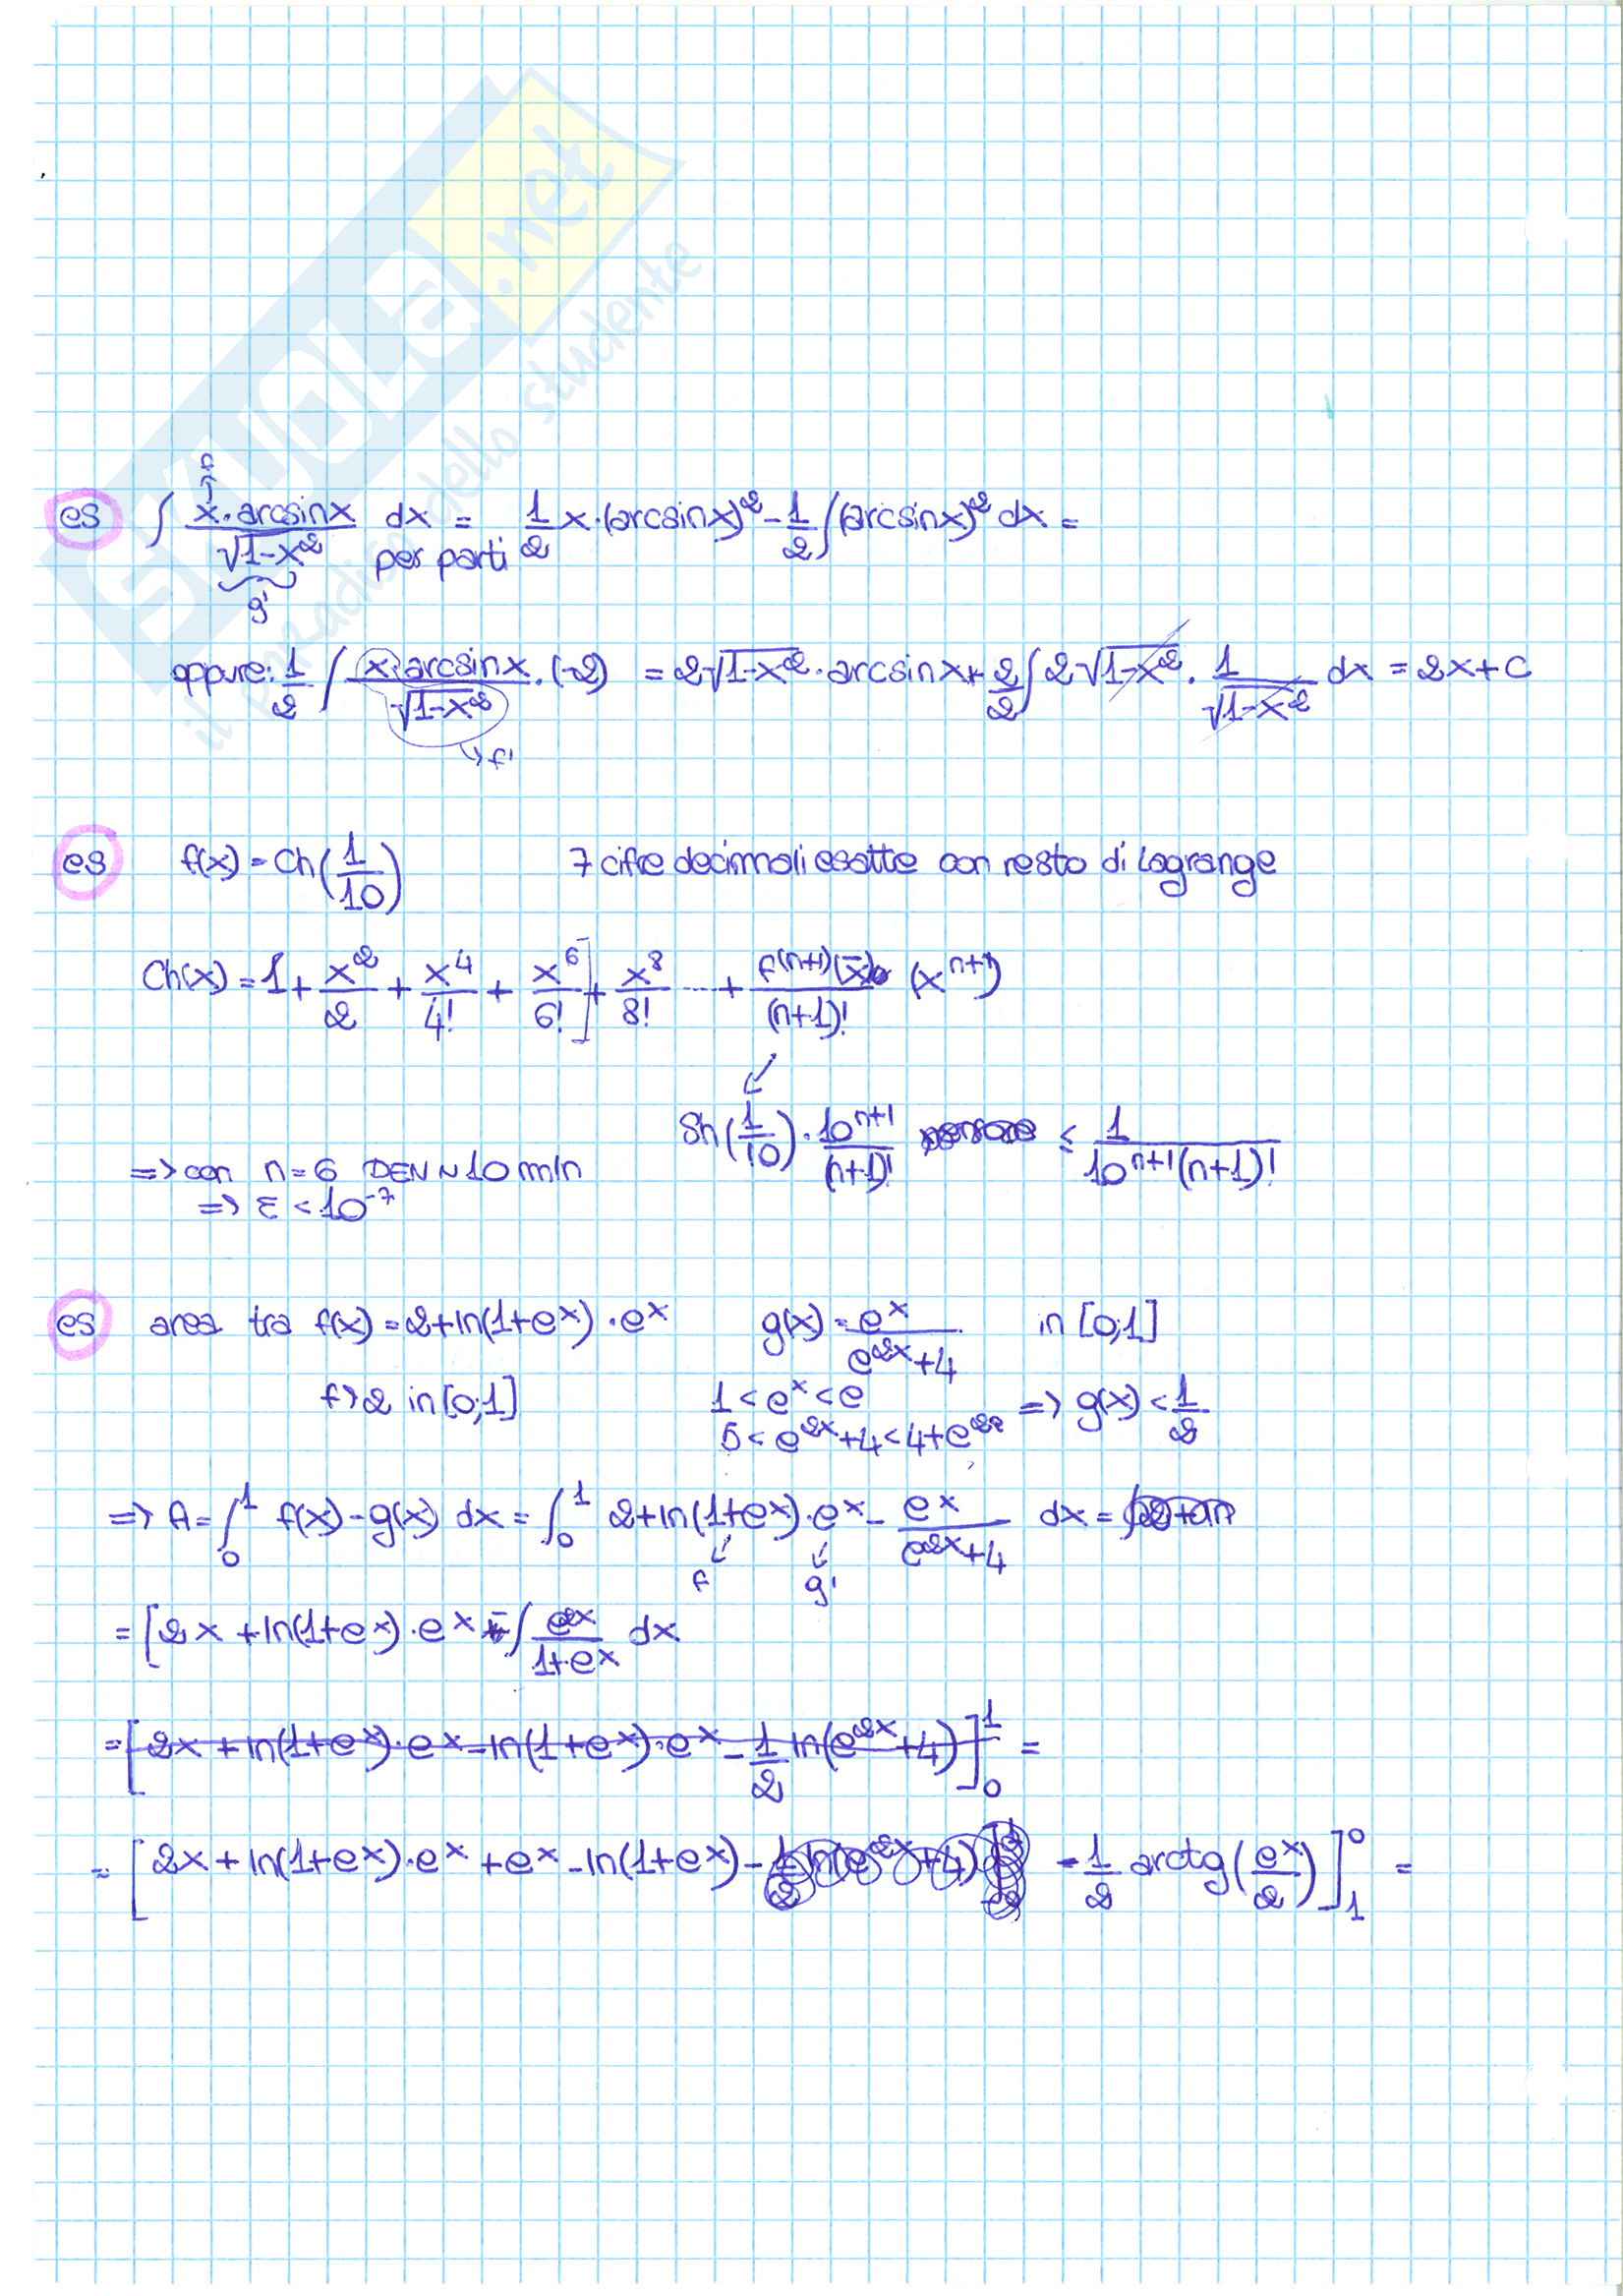 SKUOLA.net
il paradiso dello studente
es ∫ x·arcsinx / √1-x² dx = 1/2 x·(arcsinx)² - 1/2 ∫(arcsinx)² dx =
f
per parti
g'
oppure: 1/2 ∫ x·arcsinx / √1-x² ·(-2) = 2√1-x² · arcsinx + 2/2 ∫ 2√1-x² · 1/√1-x² dx = 2x+c
↳ f'
es f(x) = Ch(1/10) 7 cifre decimali esatte con resto di Lagrange
Ch(x) = 1 + x²/2 + x⁴/4! + x⁶/6! ] + x⁸/8! ... + f⁽ⁿ⁺¹⁾(x̄)/(n+1)! (xⁿ⁺¹)
Sh(1/10) · 10ⁿ⁺¹/(n+1)! ≤ 1/10ⁿ⁺¹(n+1)!
=> con n=6 DEN ~ 10 mln
=> ε < 10⁻⁷
es area tra f(x) = 2+ln(1+eˣ)·eˣ g(x) = eˣ/e²ˣ+4 in [0;1]
f>2 in [0;1] 1 < eˣ < e => g(x) < 1/2
5 < e²ˣ+4 < 4+e²
=> A = ∫₀¹ f(x) - g(x) dx = ∫₀¹ 2+ln(1+eˣ)·eˣ - eˣ/e²ˣ+4 dx =
f g'
= [2x + ln(1+eˣ)·eˣ - ∫ e²ˣ/1+eˣ dx
= [2x + ln(1+eˣ)·eˣ - ln(1+eˣ)·eˣ - 1/2 ln(e²ˣ+4)]₀¹ =
= [2x + ln(1+eˣ)·eˣ + eˣ - ln(1+eˣ) - 1/2 ln(e²ˣ+4) - 1/2 arctg(eˣ/2)]₁⁰ =